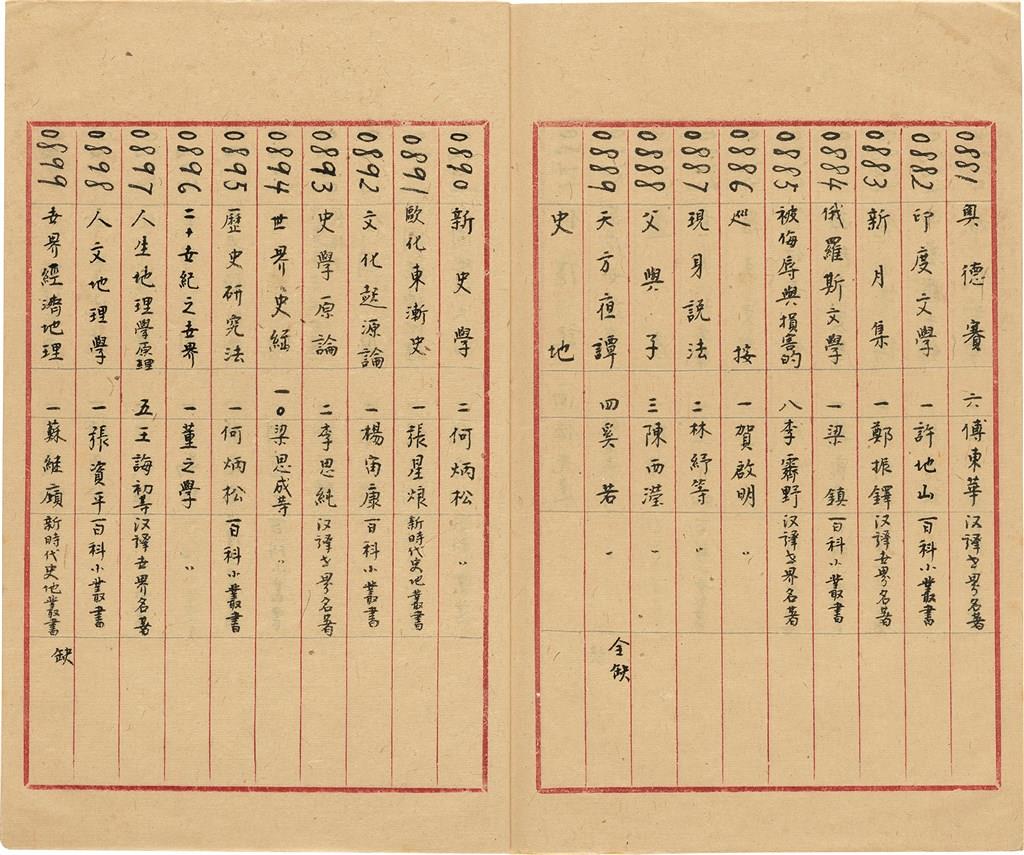 0881 奥德賽 六 傅東華 汉譯世界名著
0882 印度文學 一 許地山 百科小叢書
0883 新月集 一 鄭振鐸 汉譯世界名著
0884 俄羅斯文學 一 梁鎮 百科小叢書
0885 被侮辱與損害的 八 李霽野 汉譯世界名著
0886 巡按 一 賀啟明 〃
0887 現身説法 二 林紓等 〃
0888 父與子 三 陳西瀅 〃
0889 天方夜譚 四 奚若 〃 全缺
史地
0890 新史學 二 何炳松
0891 歐化東漸史 一 張星烺 新時代史地叢書
0892 文化起源論 一 楊 康 百科小叢書
0893 史學原論 二 李思純 汉譯世界名著
0894 世界史綱 一〇 梁思成等 〃
0895 歷史研究法 一 何炳松 百科小叢書
0896 二十世紀之世界 一 董之學 〃
0897 人生地理學原理 五 王誨初等 汉譯世界名著
0898 人文地理學 一 張資平 百科小叢書
0899 世界經濟地理 一 蘇維 新時代史地叢書 缺